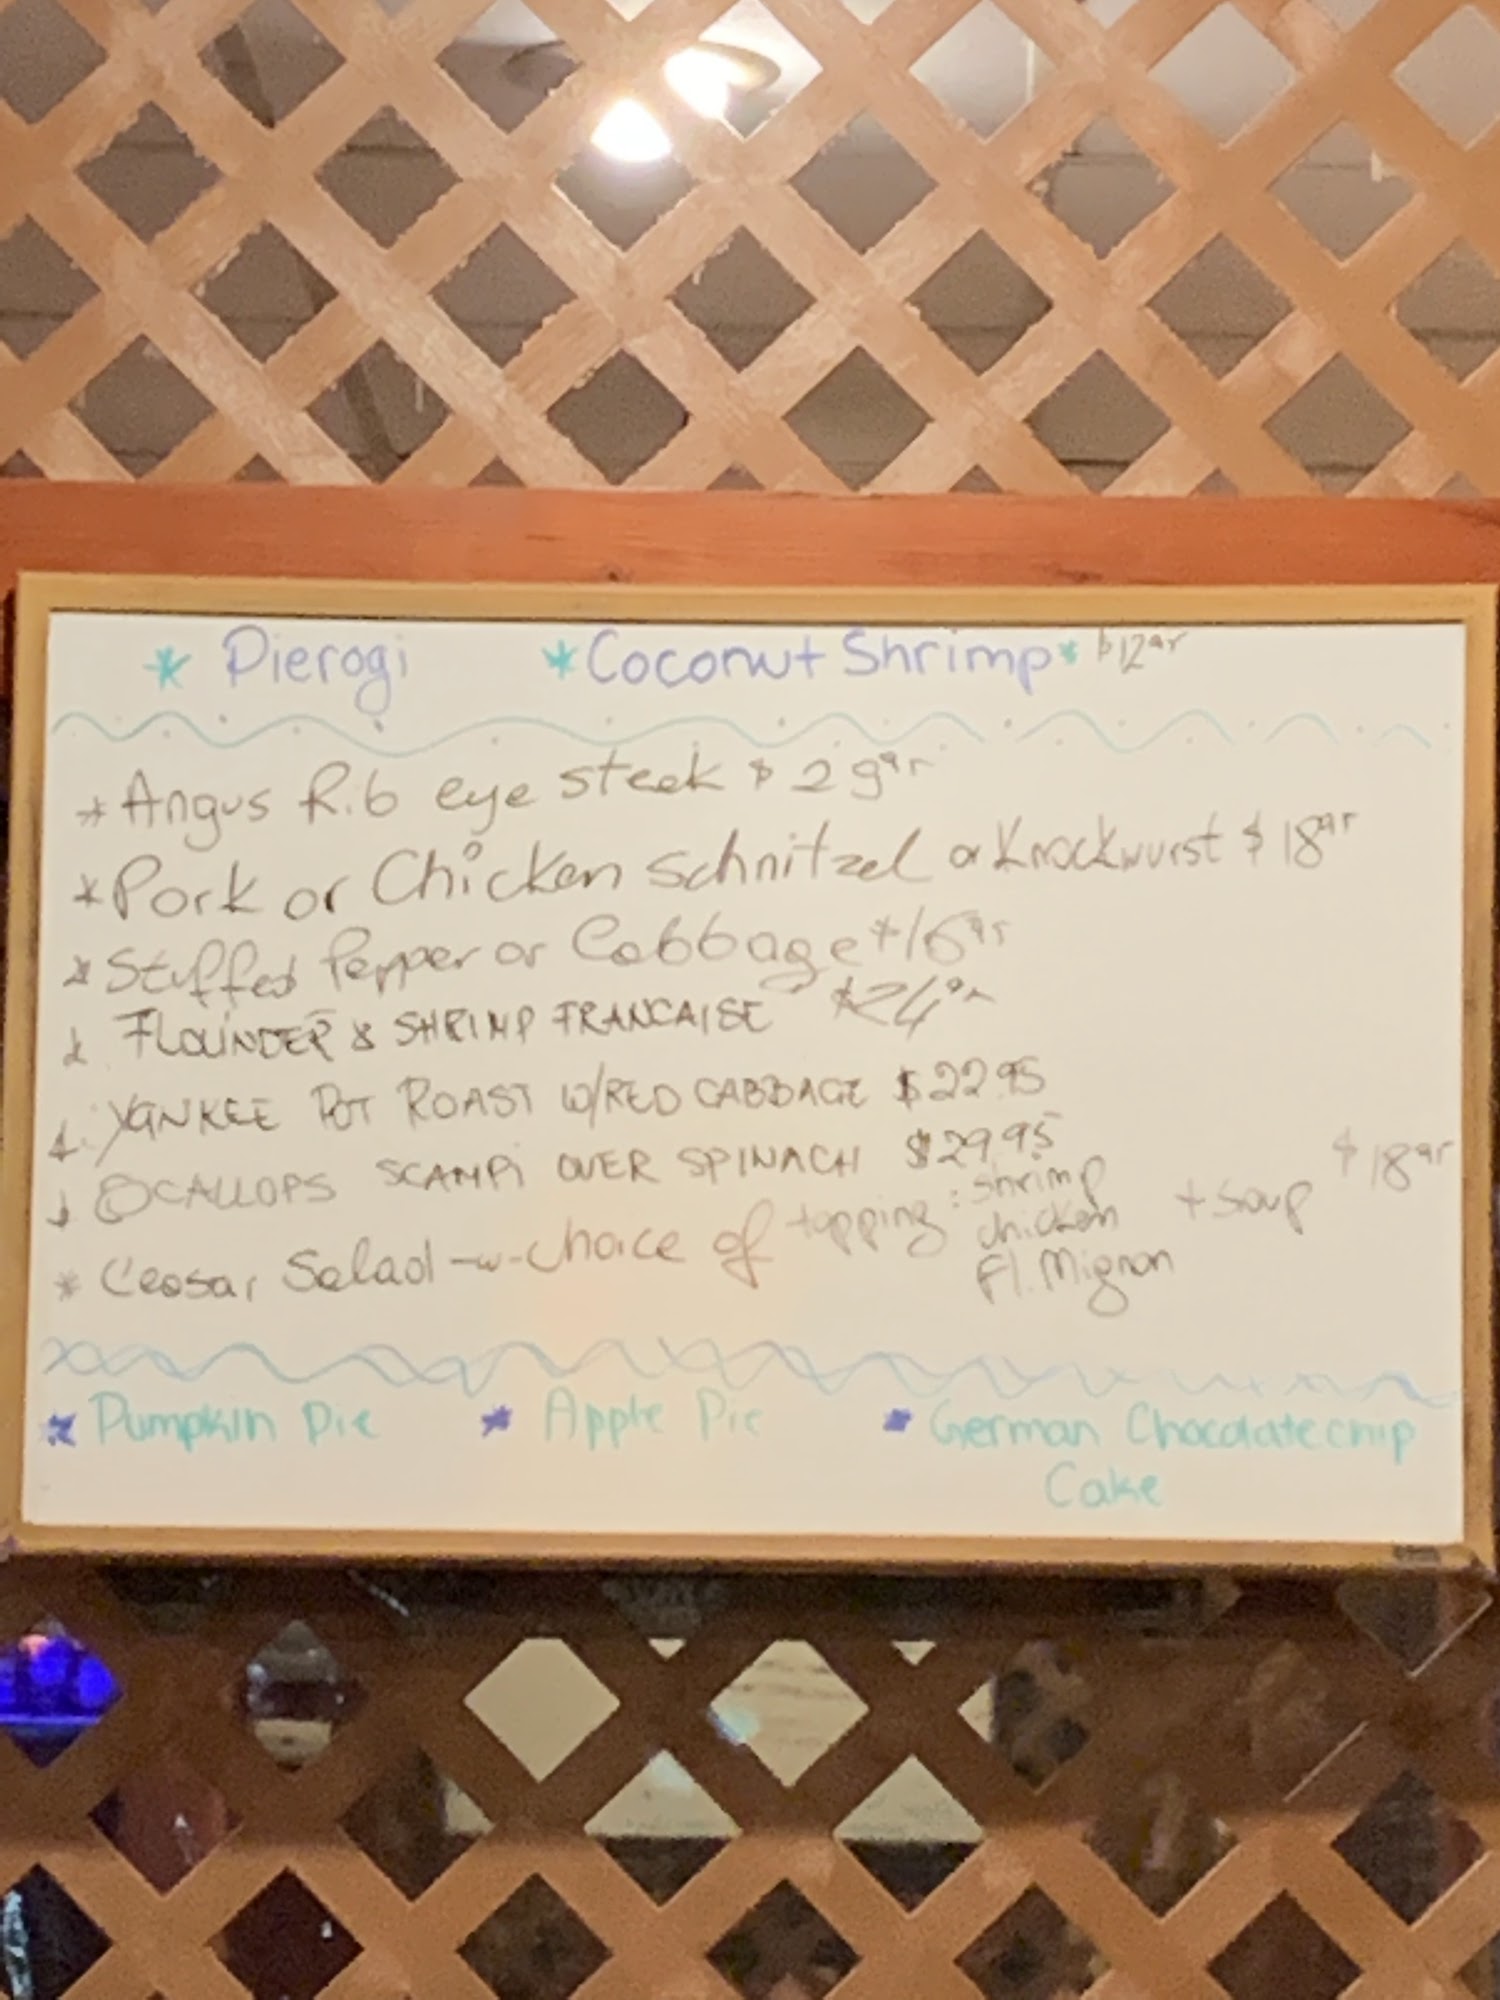 * Pierogi * Coconut Shrimp * $12.95
* Angus Rib eye steak $29.95
* Pork or Chicken Schnitzel or Knockwurst $18.95
* Stuffed Pepper or Cabbage $16.95
* FLOUNDER & SHRIMP FRANCAISE $24.95
* YANKEE POT ROAST W/RED CABBAGE $22.95
* SCALLOPS SCAMPi OVER SPINACH $29.95
* Ceasar Salad -w- choice of topping: shrimp
chicken + Soup $18.95
Fl. Mignon
* Pumpkin Pie * Apple Pie * German Chocolate chip
Cake